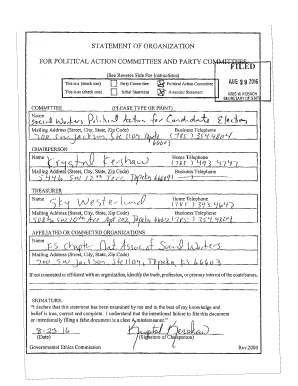 STATEMENT OF ORGANIZATION
FOR POLITICAL ACTION COMMITTEES AND PARTY COMMITTEES
FILED
(See Reverse Side For Instructions)
AUG 29 2016
This is a (check one) Party Committee Political Action Committee
This is an (check one) Initial Statement Amended Statement
KRIS W. KOBACH
SECRETARY OF STATE
COMMITTEE (PLEASE TYPE OR PRINT)
Name
Social Workers Political Action for Candidate Election
Mailing Address (Street, City, State, Zip Code) Business Telephone
700 SW Jackson, Ste 1109 Topeka (785) 354-4804
66603
CHAIRPERSON
Name Home Telephone
Krystal Kershaw (785) 493-4747
Mailing Address (Street, City, State, Zip Code) Business Telephone
5446 SW 12th Terr Topeka ( )
TREASURER
Name Home Telephone
Sky Westerlund (785)
Mailing Address (Street, City, State, Zip Code) Business Telephone
SW 10th Apt 202, Topeka (785) 354-4804
AFFILIATED OR CONNECTED ORGANIZATIONS
Name
KS Chapter Nat. Assoc. of Social Workers
Mailing Address (Street, City, State, Zip Code)
700 SW Jackson, Ste 1109, Topeka, KS 66603
If not connected or affiliated with an organization, identify the trade, profession, or primary interest of the contributors.
SIGNATURE:
"I declare that this statement has been examined by me and to the best of my knowledge and
belief is true, correct and complete. I understand that the intentional failure to file this document
or intentionally filing a false document is a class A misdemeanor."
8-25-16 Krystal Kershaw
(Date) (Signature of Chairperson)
Governmental Ethics Commission Rev.2000